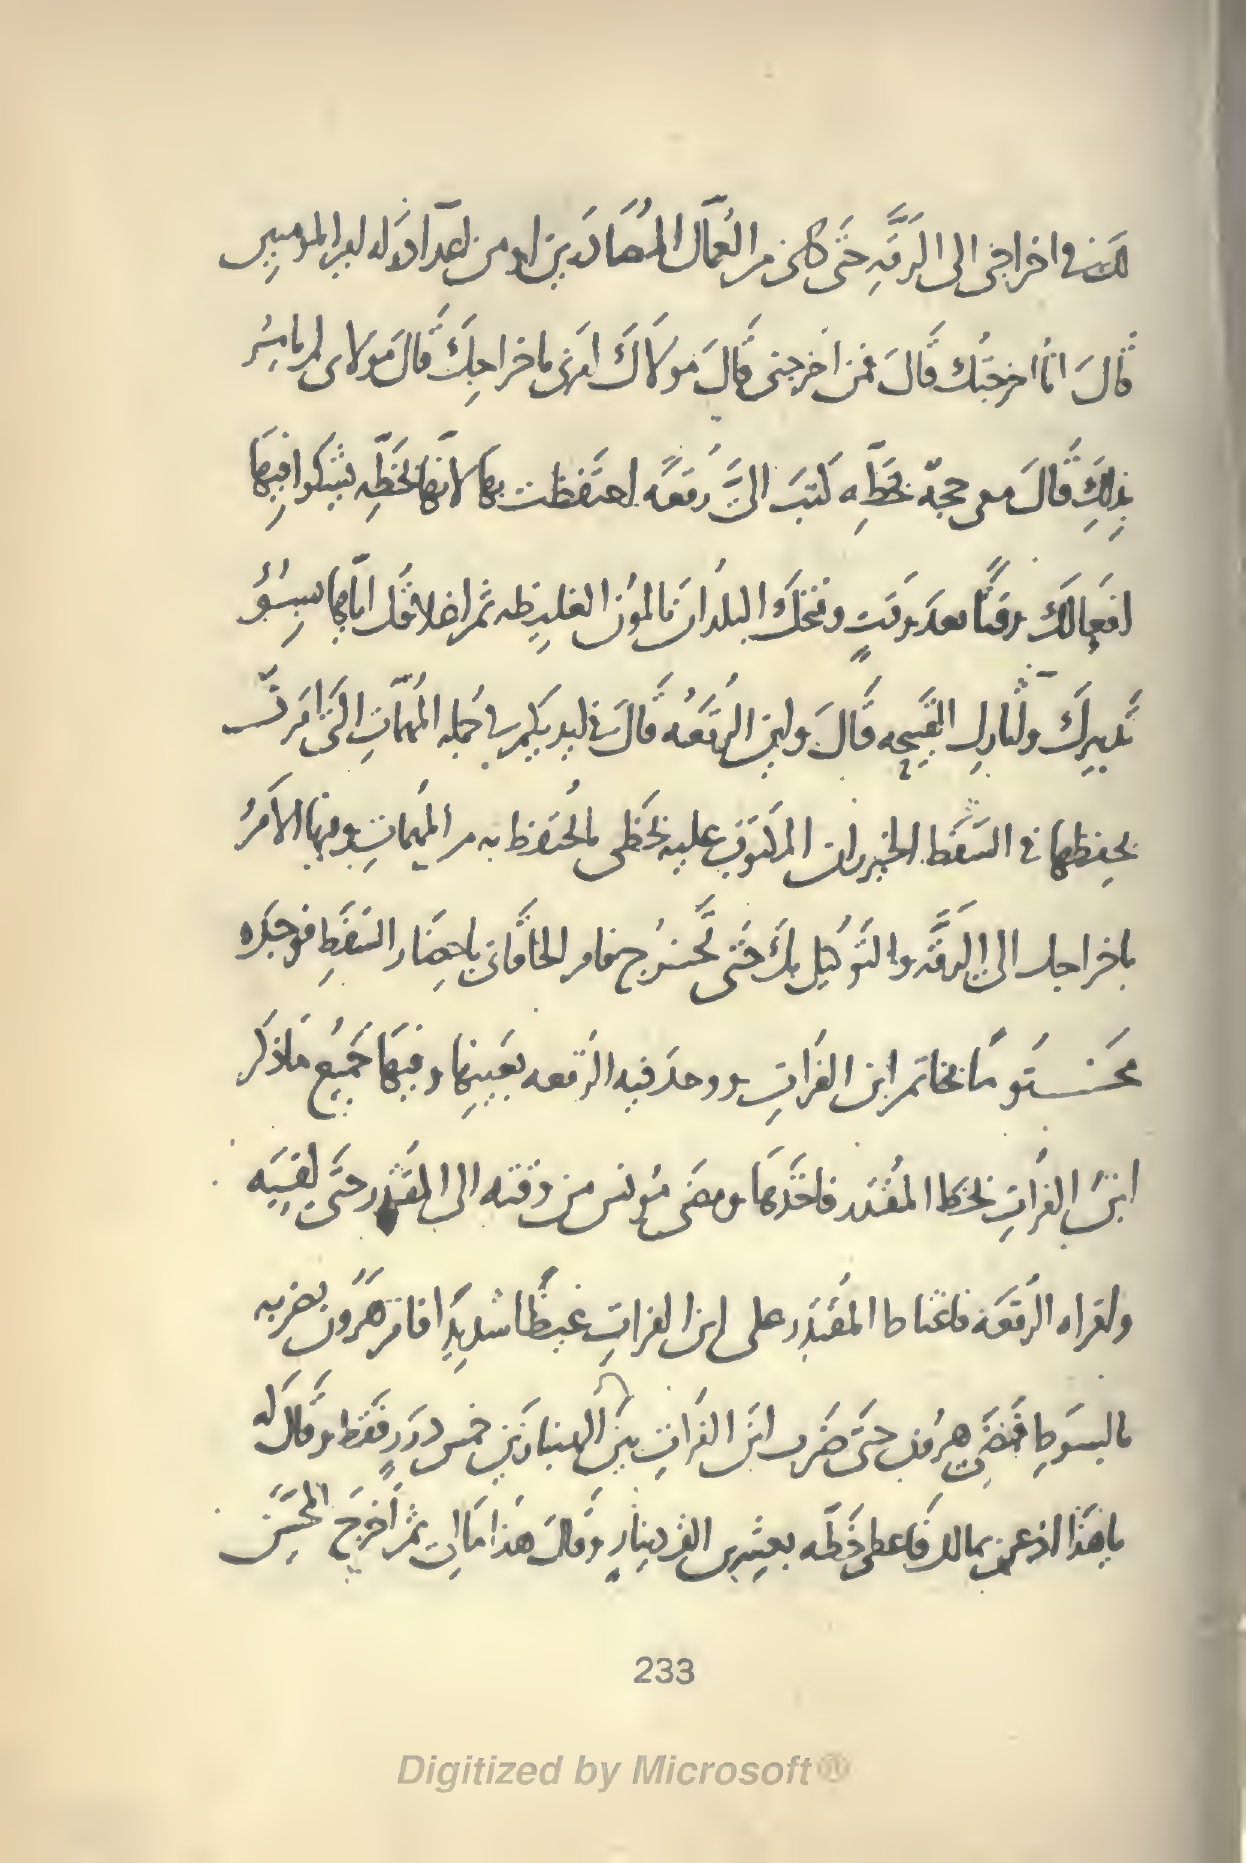 لك في اخراجى الى الرقّة حتّى كأنى من العمّال المُصَادَرين او من اعدآ دولة امير المومنين
قالَ انا اخرجتك قالَ فمن اخرجنى قالَ مولاكَ امرنى باخراجِكَ قالَ مولاى لم يامُر
بذلِكَ قالَ معى حجّة بخطّه كتبَ الىَّ رقعةً احتفظت بها لانّها بخطّه يشكوا فيها
افعالَكَ وقتًا بعدَ وقتٍ وفتحَكَ البلدان بالمؤن الغليظه ثم اغلاقك ايّاها بسوُ
تدبيرِكَ واثارِك القبيحه قالَ واين الرقعَه قالَ في ايديكم في جُمله المُهمّاتِ التى امرتُ
بحفظها في السَفَط الخيزران المكتوب عليه بخطى بالحُفظ به من المهماتِ وفيها الامرُ
باخراجك الى الرقّه والتَوكيل بك حتى تخرُج فامر الخاقانى باحضار السَفَطِ فوجده
مختومًا بخاتم ابن الفراتِ ووجد فيه الرقعه بعينها وفيها جَميع ما ذكر
ابنُ الفراتِ بخط المقتدر فاخذها ومضى مُونس من وقته الى المقتدر حتّى لقيَه
واقراه الرُقعَه فاغتاظ المقتدر على ابن الفراتِ غيظًا شديدًا فامر هرون بضربه
بالسوطِ فمضى هرون حتى ضرب ابن الفرات بين الهنبازين خمس دررٍ فقط وقالَ له
يا هذا اذعن بمالك فاعطى خطّه بعشرين الف دينارٍ وقال هذا مالى ثم اخرج المحسّن
233
Digitized by Microsoft®